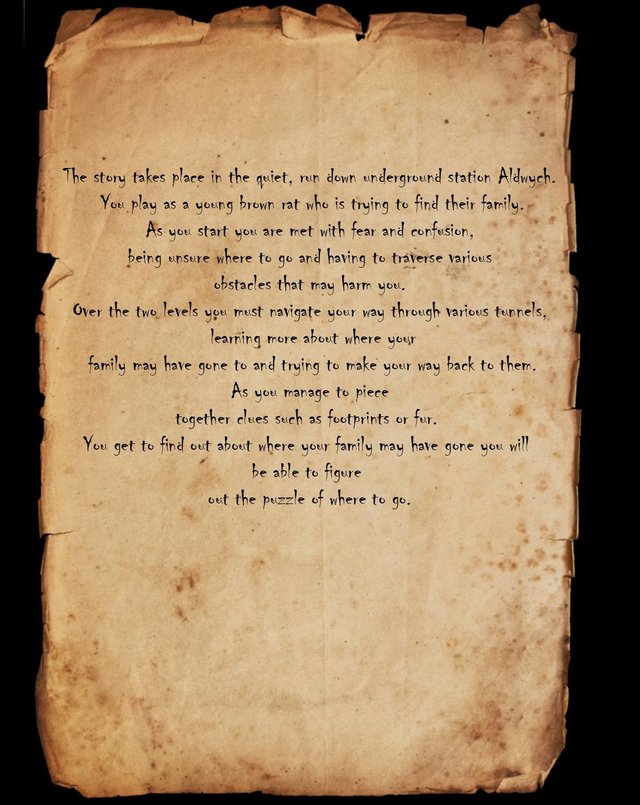 The story takes place in the quiet, run down underground station Aldwych.
You play as a young brown rat who is trying to find their family.
As you start you are met with fear and confusion,
being unsure where to go and having to traverse various
obstacles that may harm you.
Over the two levels you must navigate your way through various tunnels,
learning more about where your
family may have gone to and trying to make your way back to them.
As you manage to piece
together clues such as footprints or fur.
You get to find out about where your family may have gone you will
be able to figure
out the puzzle of where to go.